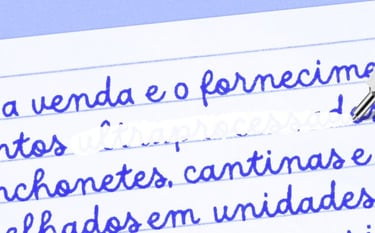 a venda e o fornecime
ntos ultraprocessad
nchonetes, cantinas e
elhados em unidades